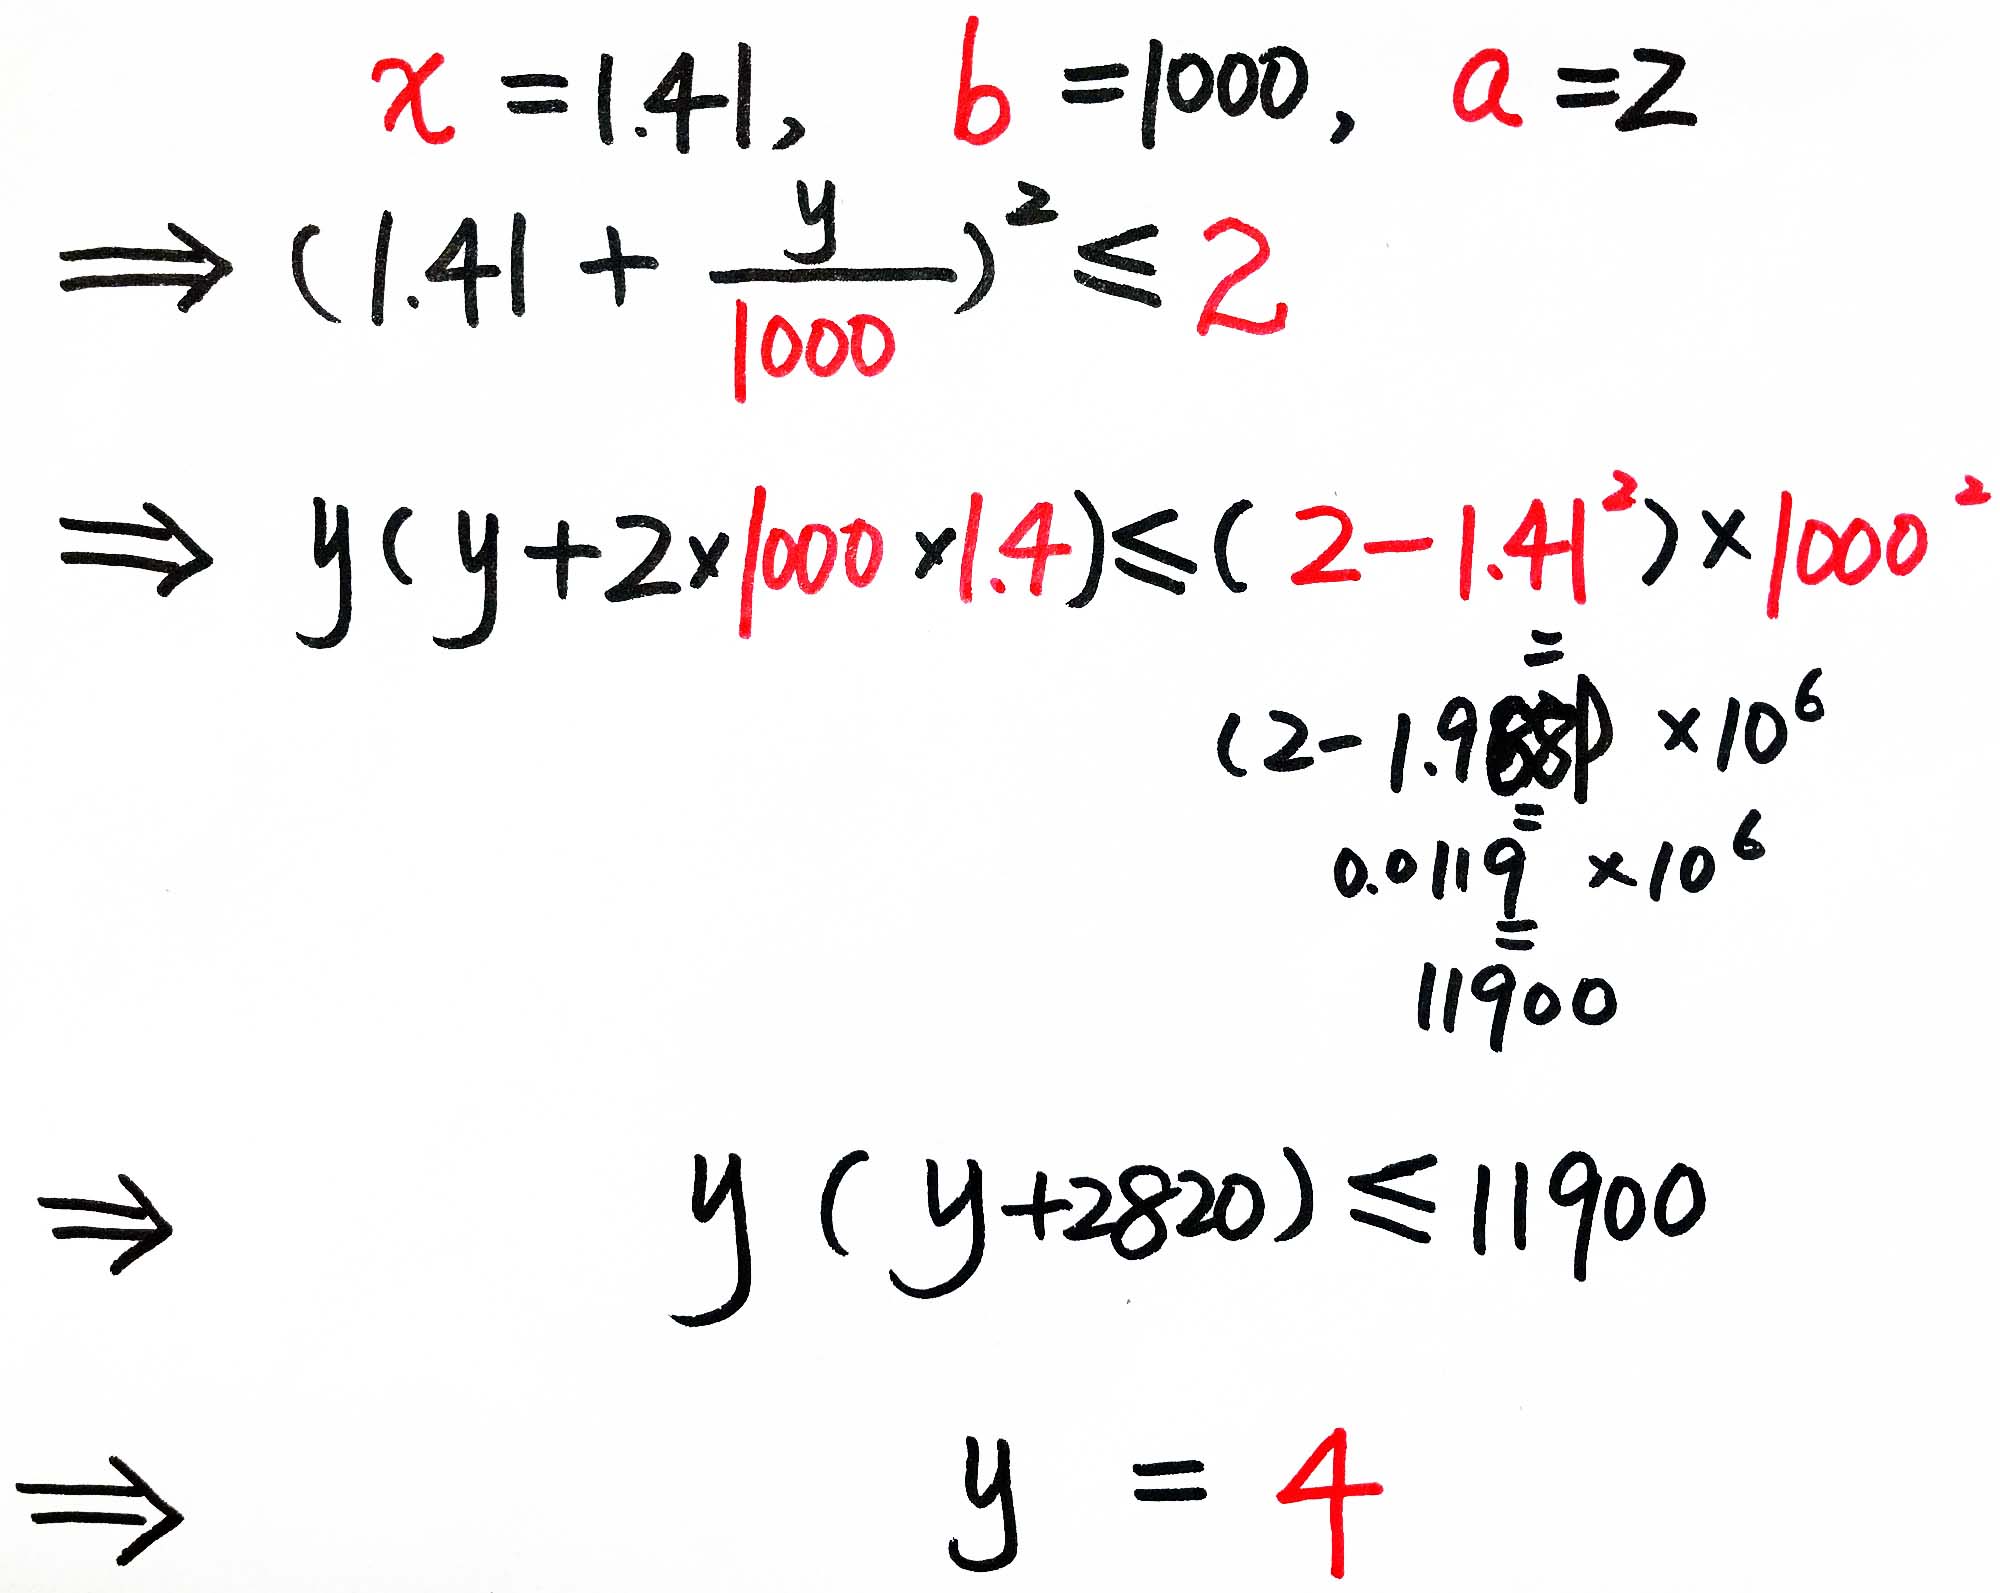 x = 1.41, b = 1000, a = 2
⇒ (1.41 + y/1000)² ≤ 2
⇒ y(y+2×1000×1.4) ≤ (2-1.41²)×1000²
=
(2-1.9 ) ×10⁶
=
0.0119 ×10⁶
=
11900
⇒ y (y+2820) ≤ 11900
⇒ y = 4